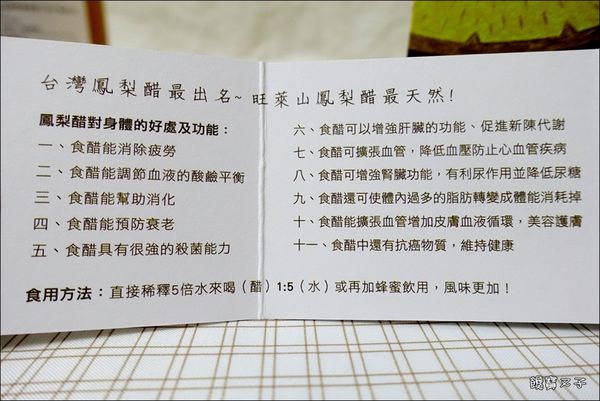 台灣鳳梨醋最出名~旺萊山鳳梨醋最天然!
鳳梨醋對身體的好處及功能：
一、食醋能消除疲勞
二、食醋能調節血液的酸鹼平衡
三、食醋能幫助消化
四、食醋能預防衰老
五、食醋具有很強的殺菌能力
六、食醋可以增強肝臟的功能、促進新陳代謝
七、食醋可擴張血管，降低血壓防止心血管疾病
八、食醋可增強腎臟功能，有利尿作用並降低尿糖
九、食醋還可使體內過多的脂肪轉變成體能消耗掉
十、食醋能擴張血管增加皮膚血液循環，美容護膚
十一、食醋中還有抗癌物質，維持健康
食用方法：直接稀釋5倍水來喝（醋）1:5（水）或再加蜂蜜飲用，風味更加！